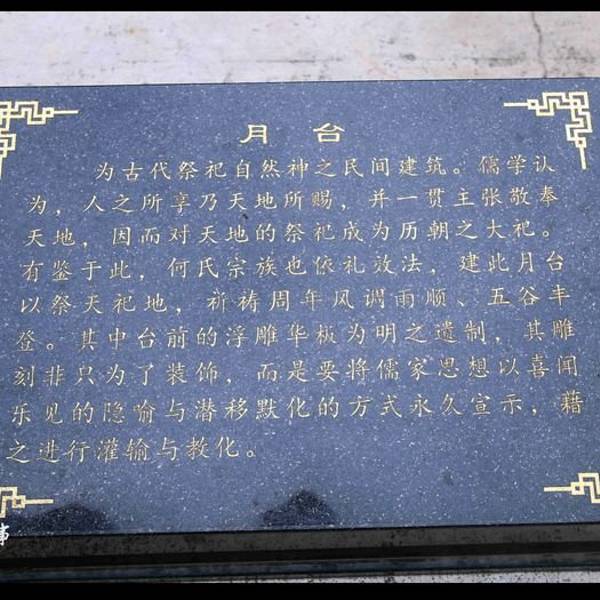 月台
为古代祭祀自然神之民间建筑。儒学认
为，人之所享乃天地所赐，并一贯主张敬奉
天地，因而对天地的祭祀成为历朝之大祀。
有鉴于此，何氏宗族也依礼效法，建此月台
以祭天祀地，祈祷周年风调雨顺、五谷丰
登。其中台前的浮雕华板为明之遗制，其雕
刻非只为了装饰，而是要将儒家思想以喜闻
乐见的隐喻与潜移默化的方式永久宣示，藉
之进行灌输与教化。